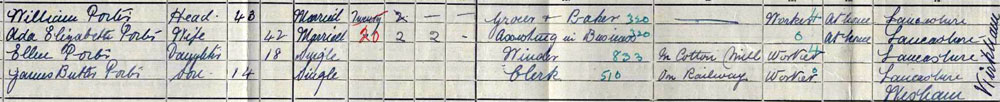 William Porter Head 43 Married Twenty 2 – – Grocer & Baker 320 Worker At home Lancashire
Ada Elizabeth Porter Wife 42 Married 20 2 2 – Assisting in Business 320 0 At home Lancashire
Ellen Porter Daughter 18 Single Winder 833 In Cotton Mill Worker Lancashire
James Butler Porter Son 14 Single Clerk 510 On Railway Worker Lancashire
Kirkham